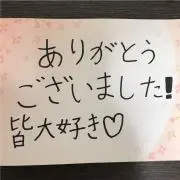 ありがとう
ございました!
皆大好き♡